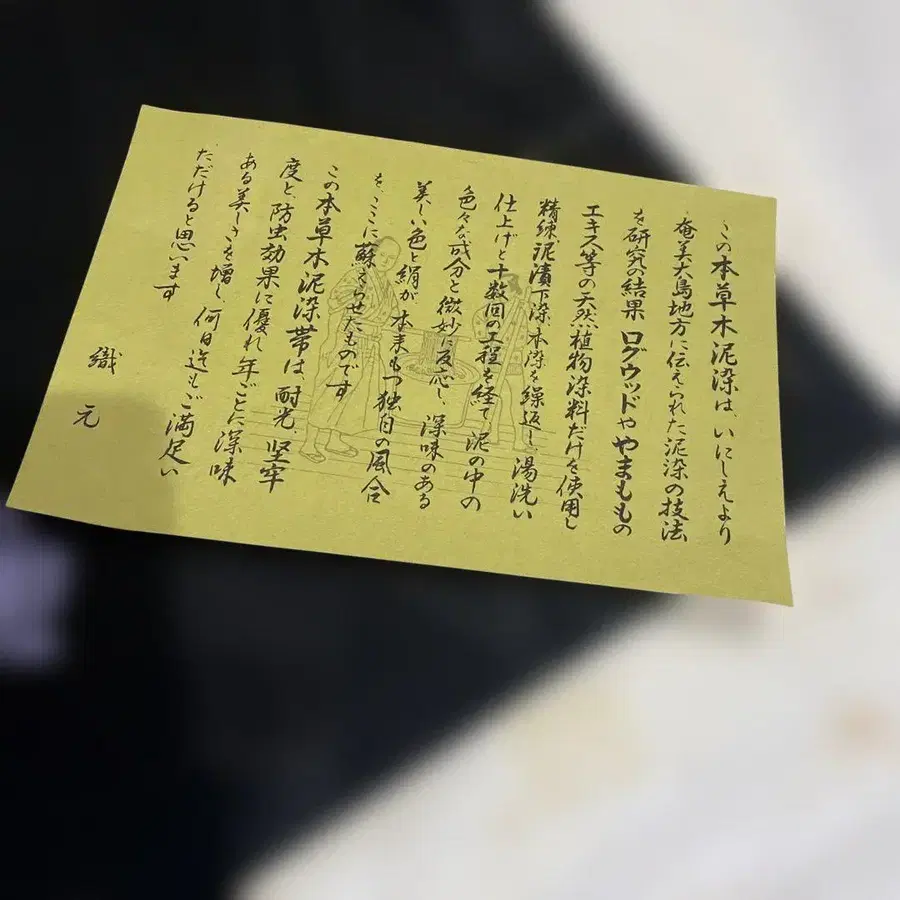 この本草木泥染は、いにしえより
奄美大島地方に伝えられた泥染の技法
を研究の結果 ログウッドややまももの
エキス等の天然植物染料だけを使用し
精練、泥漬、下染、本染を繰返し、湯洗い
仕上げと十数回の工程を経て 泥の中の
色々な成分と微妙に反応し、深味のある
美しい色と絹が、本来もつ独自の風合
を、ここに蘇きらせたものです
この本草木泥染帯は耐光、堅牢
度と、防虫効果に優れ年ごとに深味
ある美しさを増し何日迄もご満足い
ただけると思います
織元